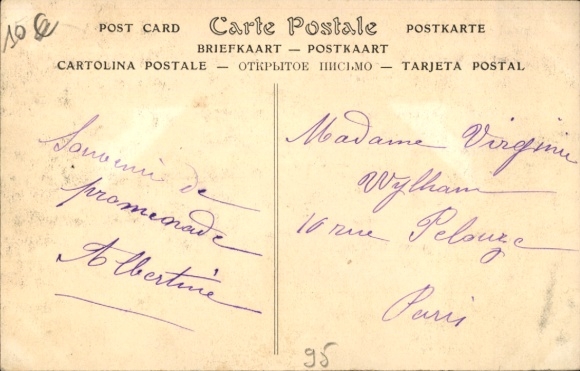 10 €
POST CARD Carte Postale POSTKARTE
BRIEFKAART — POSTKAART
CARTOLINA POSTALE — ОТКРЫТОЕ ПИСЬМО — TARJETA POSTAL
Souvenir de
promenade
Albertine
Madame Virginie
Wylham
10 rue Pelouze
Paris
95